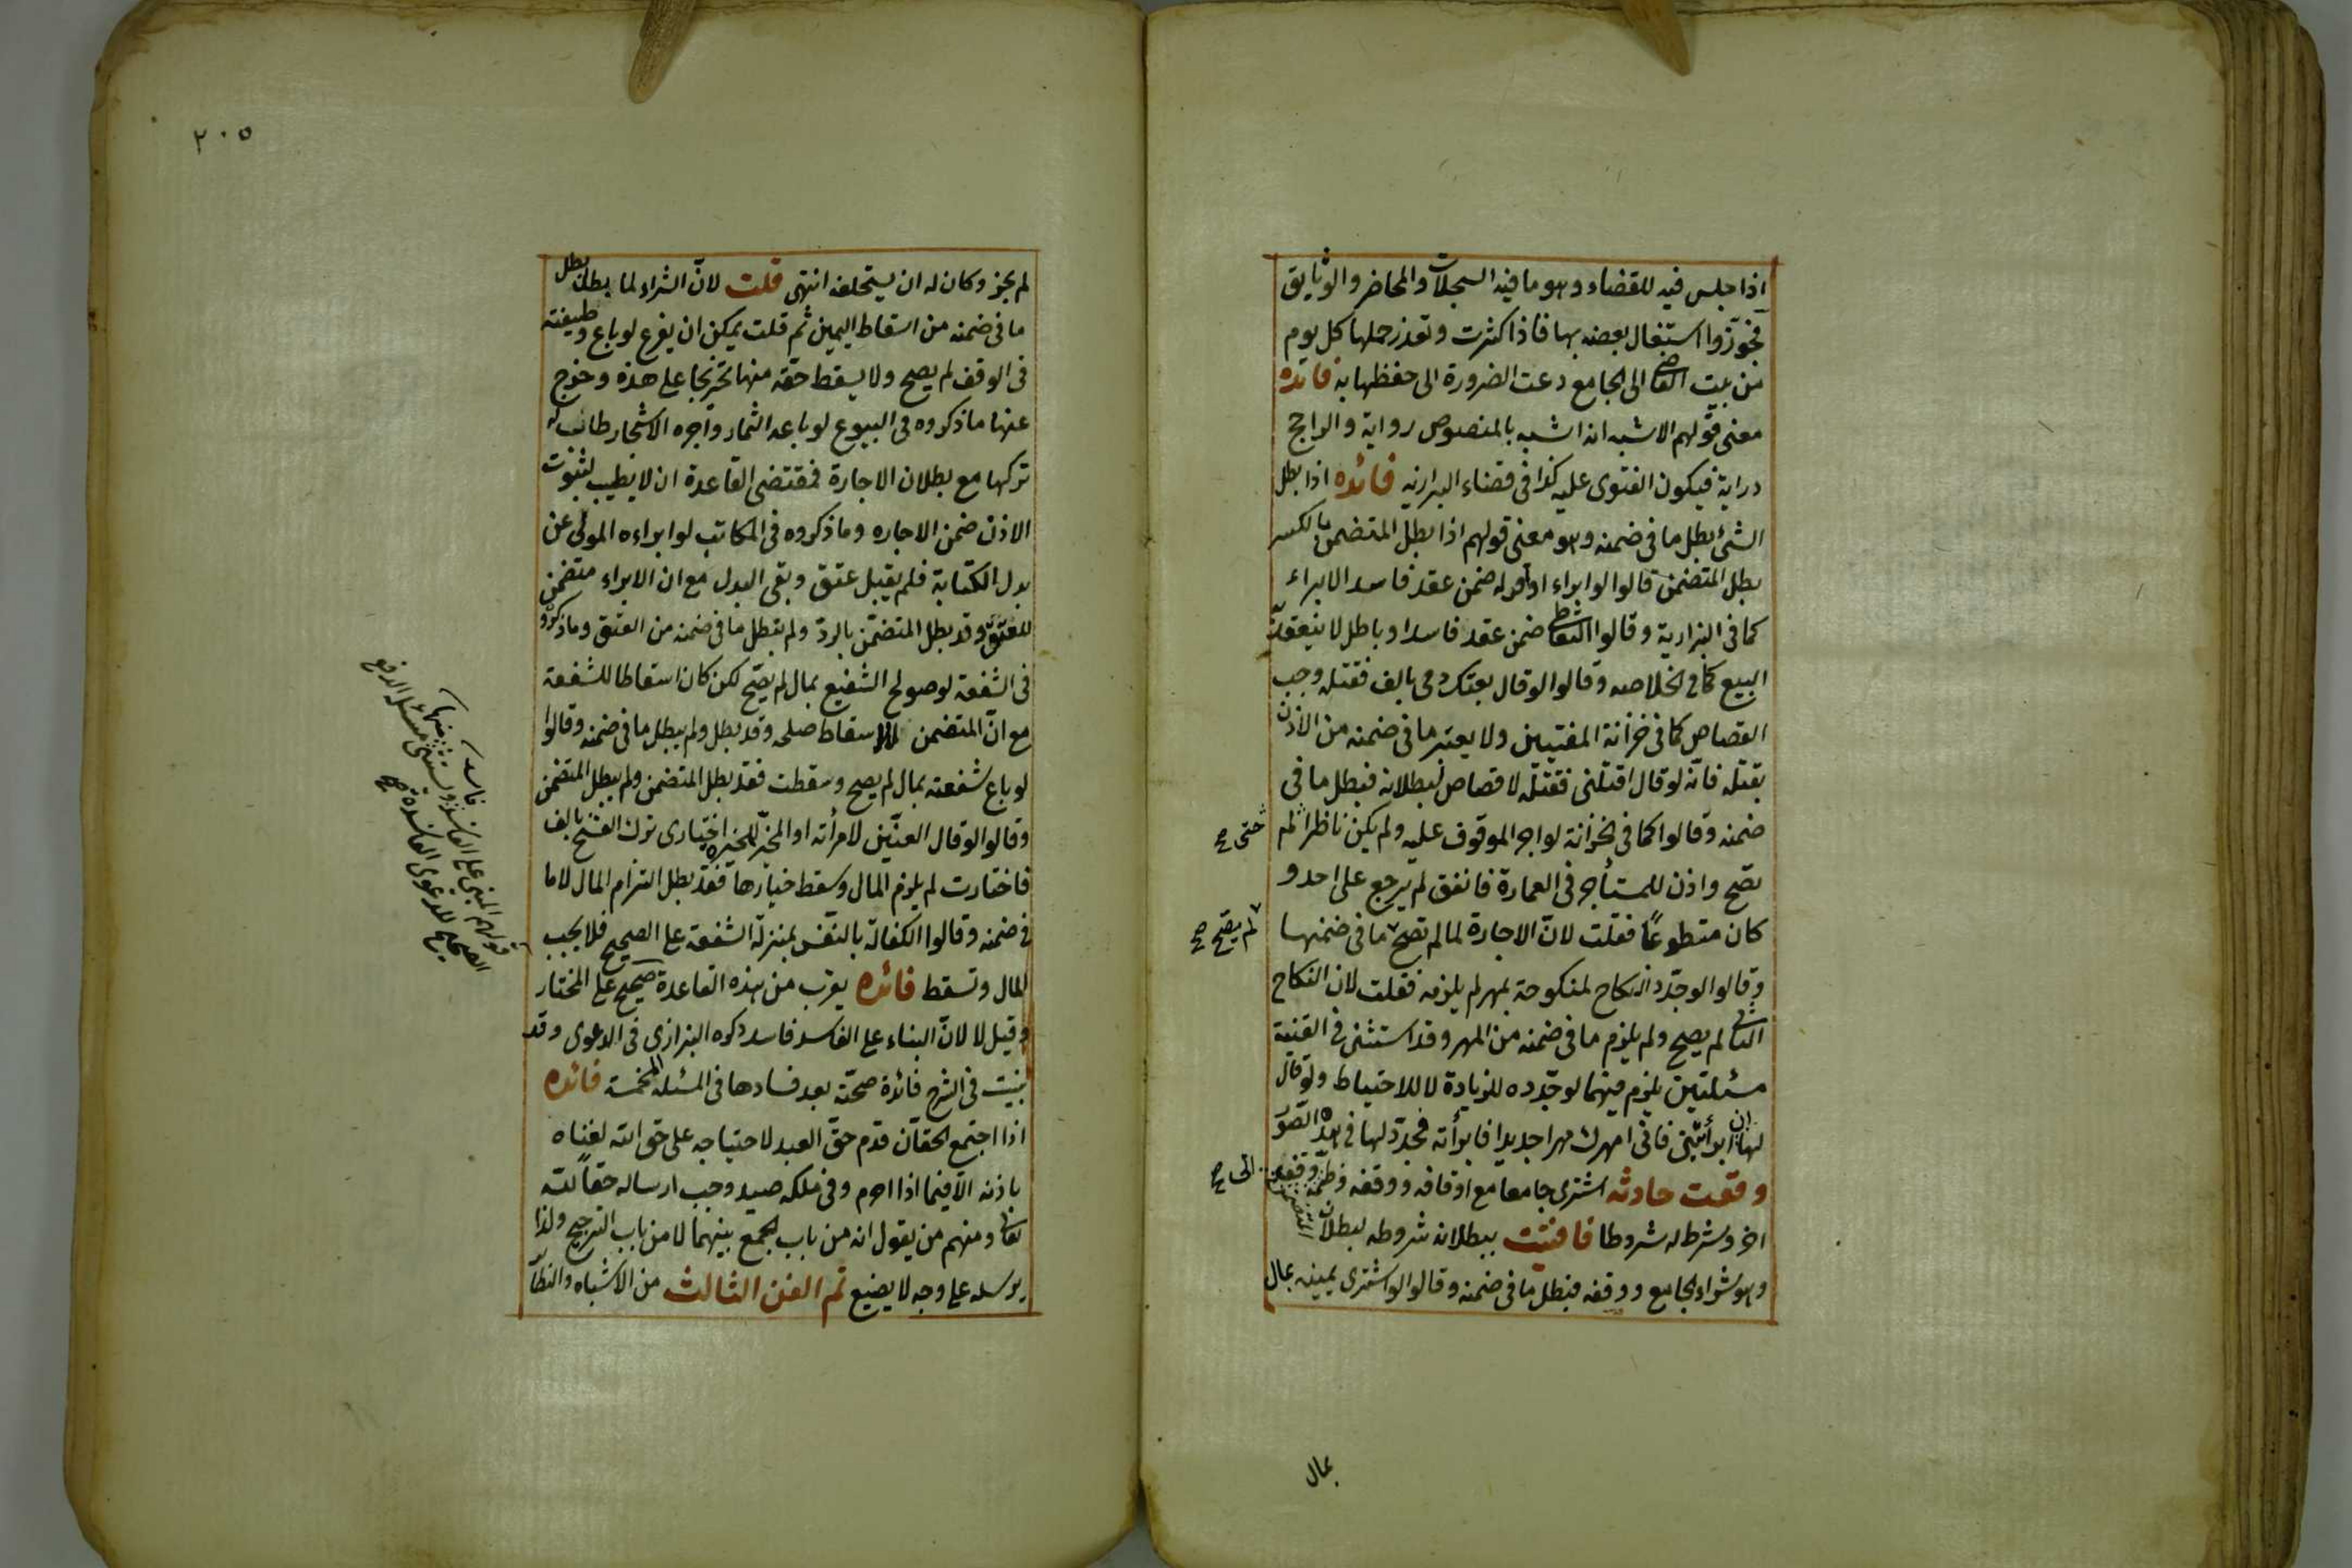 اذا جلس فيه للقضاء وهو ما فيه السجلات والمحاضر والوثايق
فجوّزوا اشتغال بعضه بها فاذا كثرت وتعذر حملها كل يوم
من بيت القاضى الى الجامع دعت الضرورة الى حفظها به فائده
معنى قولهم الاشبه انه اشبه بالمنصوص رواية والراجح
دراية فيكون الفتوى عليه كذا فى قضاء البزازيه فائده اذا بطل
الشئ بطل ما فى ضمنه وهو معنى قولهم اذا بطل المتضمن بالكسر
بطل المتضمن قالوا لو ابراء او اقر له ضمن عقد فاسد الابراء
كما فى البزازية وقالوا التعاطى ضمن عقد فاسد او باطل لا ينعقد به
البيع كما فى الخلاصه وقالوا لو قال بعتك دمى بالف فقتله وجب
القصاص كما فى خزانة المفتيين ولا يعتبر ما فى ضمنه من الاذن
بقتله فانّه لو قال اقتلنى فقتله لا قصاص لبطلانه فبطل ما فى
ضمنه وقالوا كما فى الخزانة لو اجر الموقوف عليه ولم يكن ناظرا لم
حتى صح
يصّح واذن للمستأجر فى العمارة فانفق لم يرجع على احد و
كان متطوعًا فقلت لانّ الاجارة لما لم تصح ما فى ضمنها
لم يصّح صح
وقالوا لو جدّد النكاح لمنكوحة بمهر لم يلزمه فقلت لان النكاح
الثانى لم يصح ولم يلزم ما فى ضمنه من المهر وقد استثنى فى القنية
مسئلتين يلزم فيهما لو جدّده للزيادة لا للاحتياط ولو قال
لها ان ابرأتنى فانى امهرك مهرا جديدا فابرأته فجدد لها فى هذه الصور
وقعت حادثه اشترى جامعا مع اوقافه ووقفه وضمه وقف
الى صح
اخر وشرط له شروطا فافتيت ببطلانه شروطه لبطلان المتضمن
وهو شراء الجامع ووقفه فبطل ما فى ضمنه وقالوا لو اشترى يمينه بمال
بمال
٢٠٥
لم يجز وكان له ان يستحلفه انتهى قلت لانّ الشراء لما بطل بطل
ما فى ضمنه من اسقاط اليمين ثم قلت يمكن ان يفرع لو باع وظيفته
فى الوقف لم يصح ولا يسقط حقّه منها تخريجا على هذه وخرج
عنها ما ذكروه فى البيوع لو باعه الثمار واجره الاشجار طاب له
تركها مع بطلان الاجارة فمقتضى القاعدة ان لا يطيب لثبوت
الاذن ضمن الاجاره وما ذكروه فى المكاتب لو ابراءه المولى عن
بدل الكتابة فلم يقبل عتق وبقى البدل مع ان الابراء متضمن
للعتق وقد بطل المتضمّن بالردّ ولم يبطل ما فى ضمنه من العتق وما ذكروه
فى الشفعة لو صولح الشفيع بمال لم يصّح لكن كان اسقاطا للشفعة
مع انّ المتضمن للاسقاط صلحه وقد بطل ولم يبطل ما فى ضمنه وقالوا
لو باع شفعته بمال لم يصح وسقطت فقد بطل المتضمن ولم يبطل المتضمن
وقالوا لو قال العنّين لامرأته او المخيّر للمخيره اختيارى ترك الفسخ بالف
فاختارت لم يلزم المال وسقط خيارها فقد بطل التزام المال لا ما
فى ضمنه وقالوا الكفالة بالنفس بمنزلة الشفعة على الصحيح فلا يجب
المال وتسقط فائده يقرب من هذه القاعدة صحيح على المختار
قولهم المبنى على الفاسد فاسد ويستثنى منها مسئلة الدفع
الصحيح للدعوى الفاسدة صح
وقيل لا لانّ البناء على الفاسد فاسد ذكره البزازى فى الدعوى وقد
بينت فى الشرح فائدة صحّته بعد فسادها فى المسئله المخمسة فائده
اذا اجتمع الحقّان قدم حقّ العبد لاحتياجه على حق الله لغناه
باذنه الّا فيما اذا احرم وفى ملكه صيد وجب ارساله حقّا لله
تعالى ومنهم من يقول انه من باب الجمع بينهما لا من باب الترجيح ولذا
يرسله على وجه لا يضيع تم الفن الثالث من الاشباه والنظائر